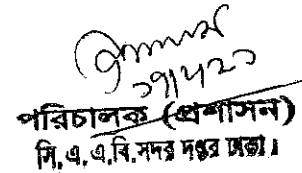 পরিচালক (প্রশাসন)
সি, এ, এ, বি, সদর দপ্তর ঢাকা।